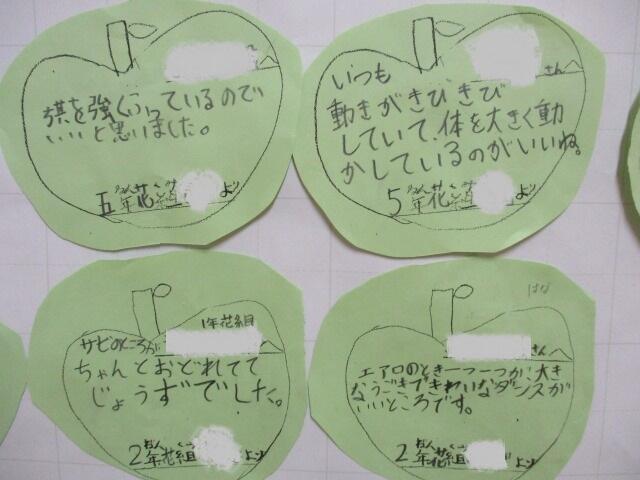 へ
旗を強くふっているので
いいと思いました。
五年花組 より
さんへ
いつも
動きがきびきび
していて、体を大きく動
かしているのがいいね。
5年花組 より
ねん くみ
1年花組
へ
サビのところが
ちゃんとおどれてて
じょうずでした。
ねん くみ
2年花組 より
はな
さんへ
エアロのとき一つ一つが大き
なうごきできれいなダンスが
いいところです。
ねん くみ
2年花組 より